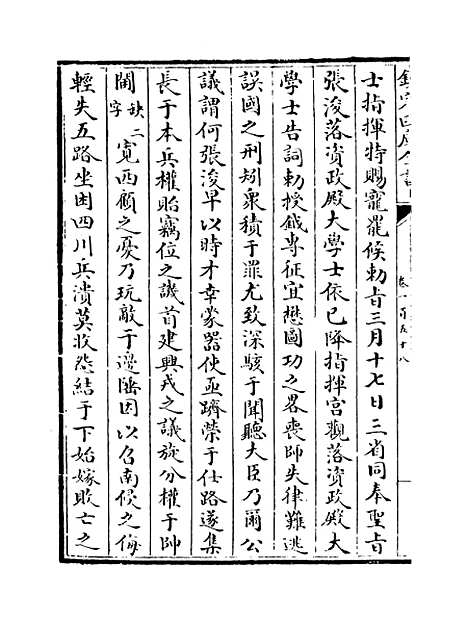 欽定四庫全書
卷一百五十八
士指揮特賜寵罷候勅㫖三月十七日三省同奉聖㫖
張浚落資政殿大學士依已降指揮宫觀落資政殿大
學士告詞勅授鉞專征宜懋圖功之畧喪師失律難逃
誤國之刑矧衆積于罪尤致深駭于聞聽大臣乃爾公
議謂何張浚早以時才幸蒙器使亟躋榮于仕路遂集
長于本兵權貽竊位之譏首建興戎之議旋分權于帥
閫缺二字寛西顧之憂乃玩敵于邊陲因以召南侵之侮
輕失五路坐困四川兵潰莫收怨結于下始嫁敗亡之